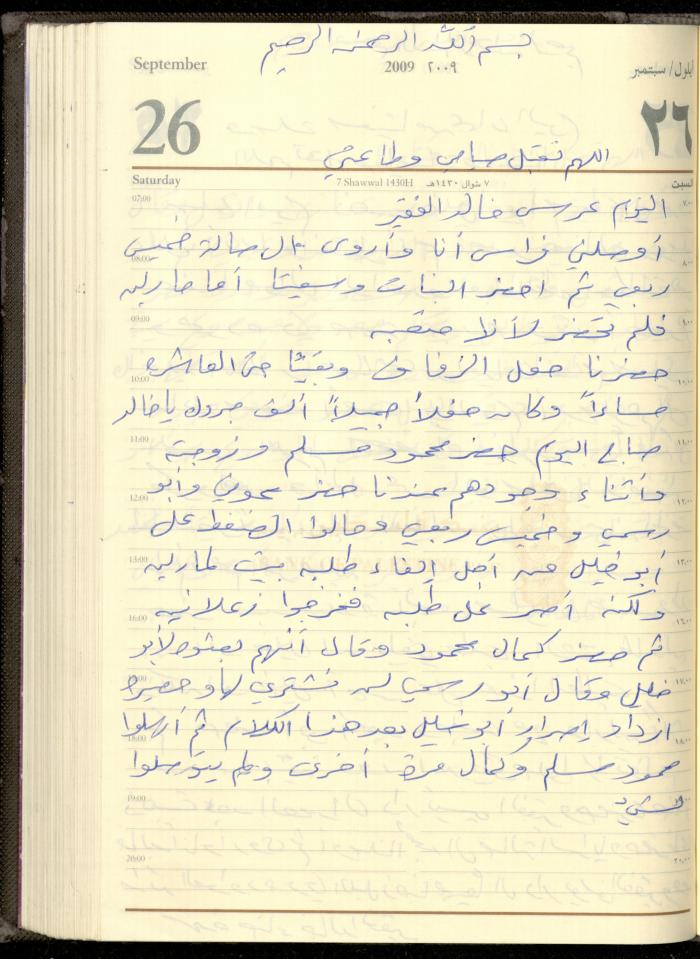 بسم الله الرحمن الرحيم
September 2009 ٢٠٠٩ أيلول/سبتمبر
26 ٢٦
اللهم تقبل صيامي وطاعتي
Saturday 7 Shawwal 1430H ٧ شوال ١٤٣٠هـ السبت
07:00 اليوم عرس خالد الفقير ٧،٠٠
أوصلني فراس أنا وأروى الى صالة خميس
08:00 ٨،٠٠
ربعي ثم احضر البنات وسفيتا أما مارلين
09:00 فلم تحضر لأنها متعبه ٩،٠٠
حضرنا حفل الزفاف وبقينا حتى العاشره
10:00 ١٠،٠٠
مساءاً وكان حفلاً جميلاً ألف مبروك يا خالد
11:00 صباح اليوم حضر محمود مسلم وزوجته ١١،٠٠
وأثناء وجودهم عندنا حضر عوني وأبو
12:00 ١٢،٠٠
رسمي وخميس ربعي وحاولوا الضغط على
13:00 أبو خليل من أجل إلغاء طلبه بيت لمارلين ١٣،٠٠
ولكنه أصر على طلبه فخرجوا زعلانين
16:00 ١٦،٠٠
ثم حضر كمال محمود وقال أنهم بعثوه لأبو
خليل وقال أبو رسمي لن نشتري لها و حصيره
17:00 ١٧،٠٠
ازداد إصرار أبو خليل بعد هذا الكلام ثم أرسلوا
18:00 ١٨،٠٠
محمود مسلم وكمال مرة أخرى ولم يتوصلوا
19:00 لشيء
20:00 ٢٠،٠٠